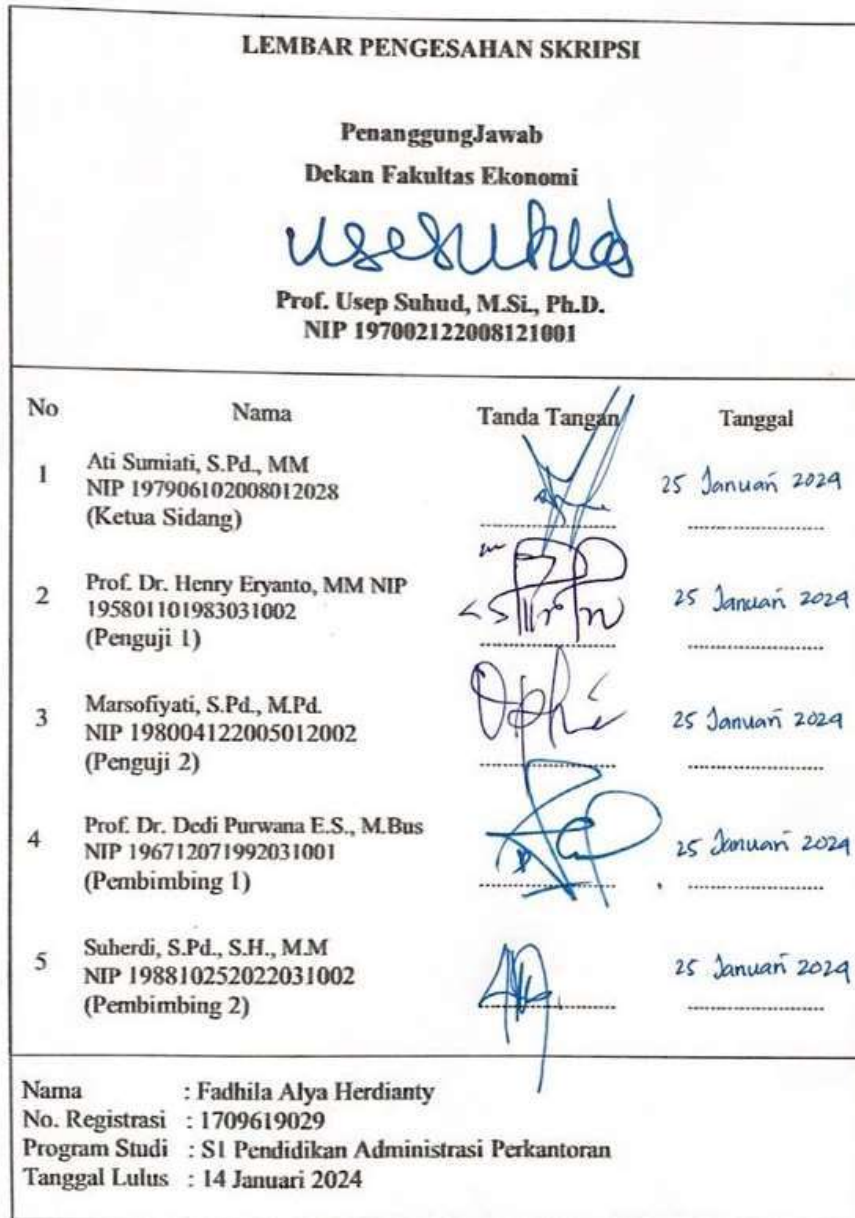 LEMBAR PENGESAHAN SKRIPSI
PenanggungJawab
Dekan Fakultas Ekonomi
usesuhud
Prof. Usep Suhud, M.Si., Ph.D.
NIP 197002122008121001
No Nama Tanda Tangan Tanggal
1 Ati Sumiati, S.Pd., MM
NIP 197906102008012028
(Ketua Sidang)
25 Januari 2024
2 Prof. Dr. Henry Eryanto, MM NIP
195801101983031002
(Penguji 1)
25 Januari 2024
3 Marsofiyati, S.Pd., M.Pd.
NIP 198004122005012002
(Penguji 2)
25 Januari 2024
4 Prof. Dr. Dedi Purwana E.S., M.Bus
NIP 196712071992031001
(Pembimbing 1)
25 Januari 2024
5 Suherdi, S.Pd., S.H., M.M
NIP 198810252022031002
(Pembimbing 2)
25 Januari 2024
Nama : Fadhila Alya Herdianty
No. Registrasi : 1709619029
Program Studi : S1 Pendidikan Administrasi Perkantoran
Tanggal Lulus : 14 Januari 2024